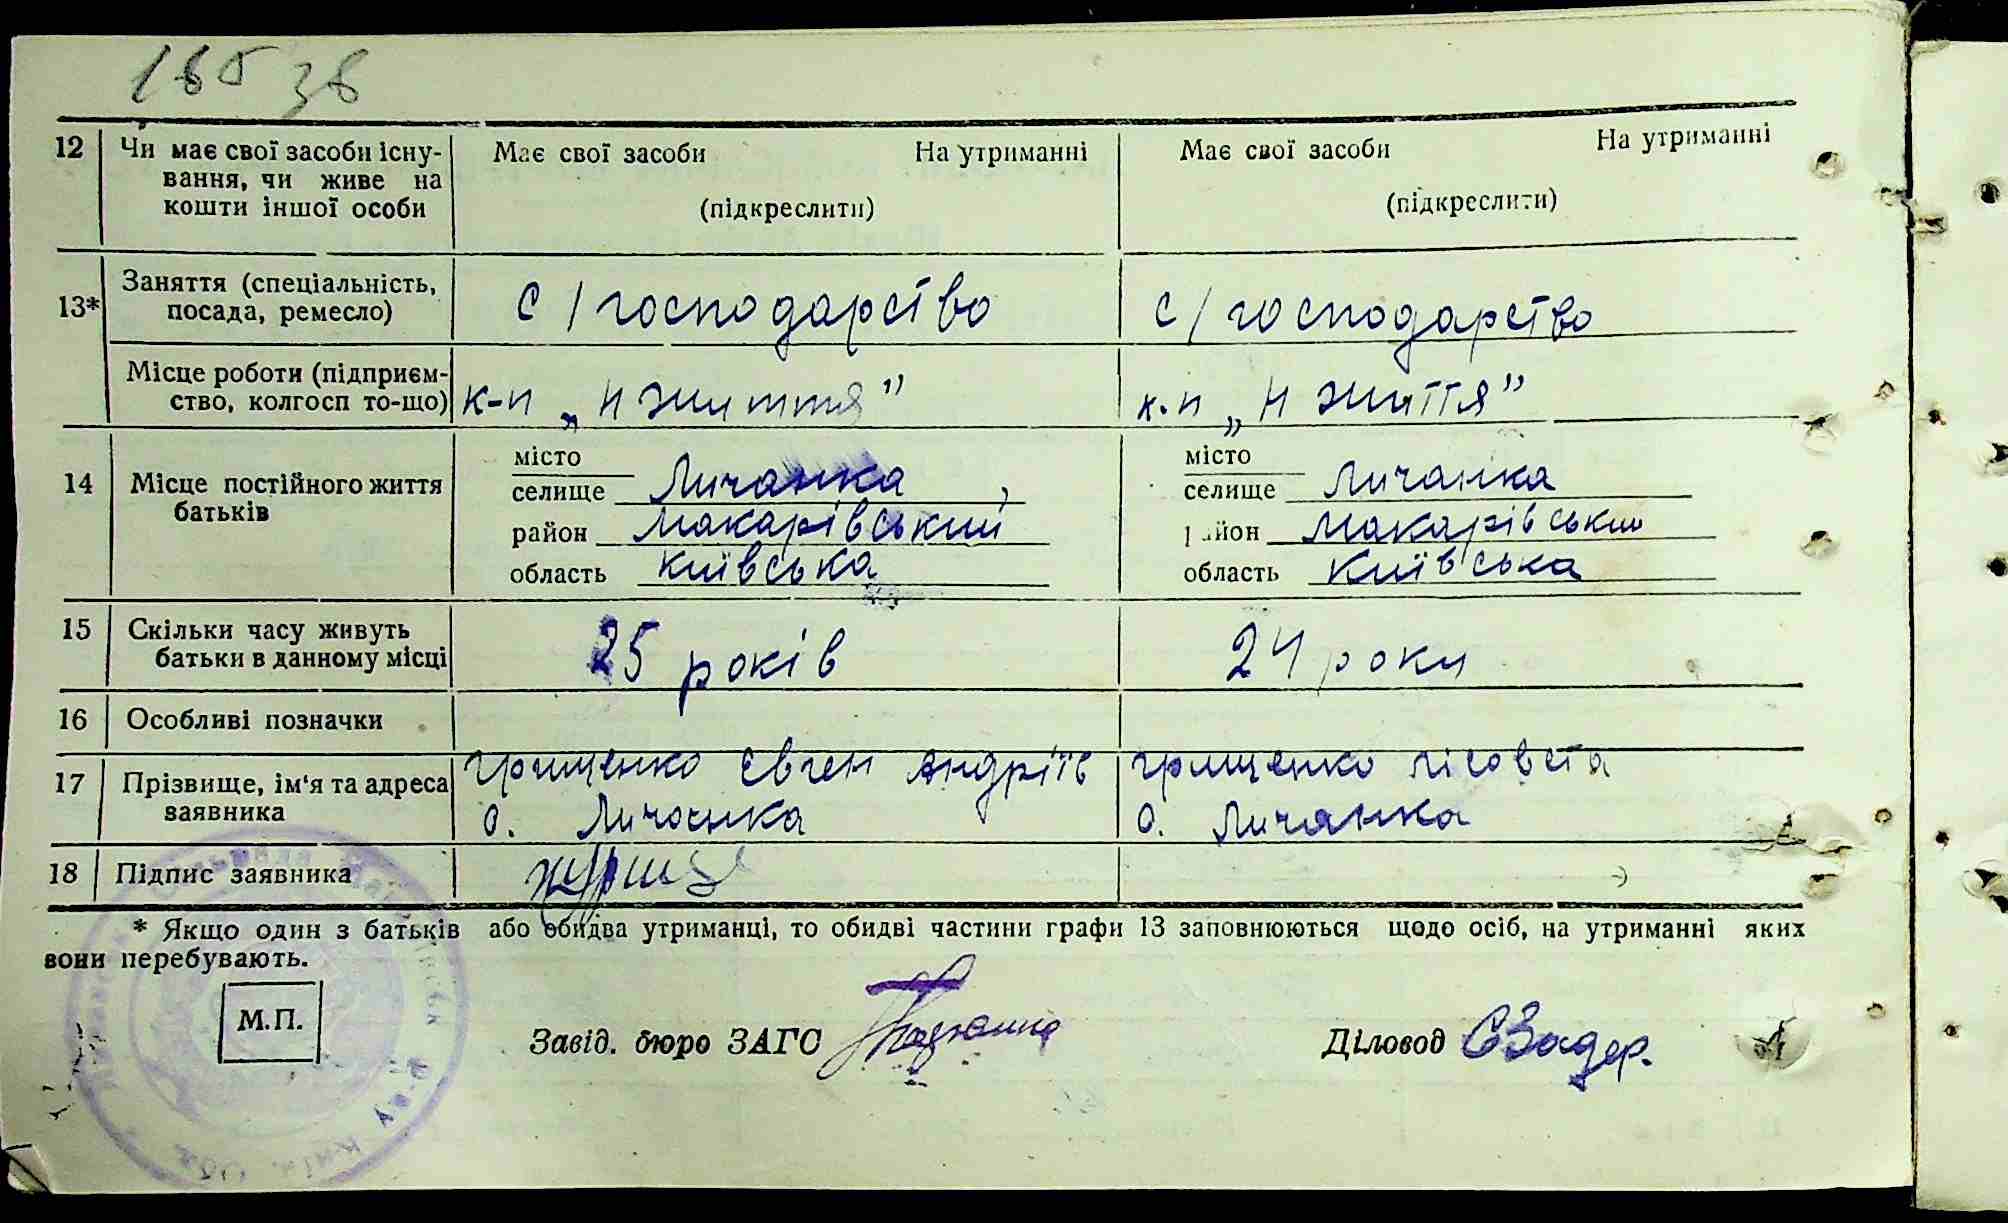 12 Чи має свої засоби існу- Має свої засоби На утриманні Має свої засоби На утриманні
вання, чи живе на
кошти іншої особи (підкреслити) (підкреслити)
13* Заняття (спеціальність, с/господарство с/господарство
посада, ремесло)
Місце роботи (підприєм- к-п „Н життя" к-п „Н життя"
ство, колгосп то-що)
14 Місце постійного життя місто місто
батьків селище Личанка, селище Личанка
район Макарівський район Макарівський
область Київська область Київська
15 Скільки часу живуть 25 років 24 роки
батьки в данному місці
16 Особливі позначки
17 Прізвище, ім'я та адреса Грищенко Євген Андріїв Грищенко Лісовета
заявника с. Личанка с. Личанка
18 Підпис заявника
* Якщо один з батьків або обидва утриманці, то обидві частини графи 13 заповнюються щодо осіб, на утриманні яких
вони перебувають.
М.П.
Завід. бюро ЗАГС Діловод